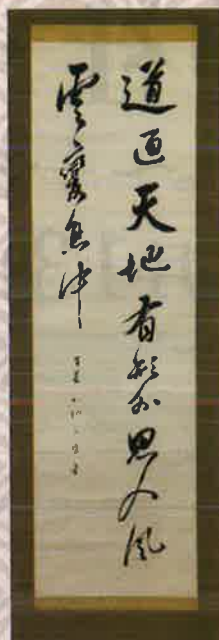 道通天地有形外思入風
雲變態中